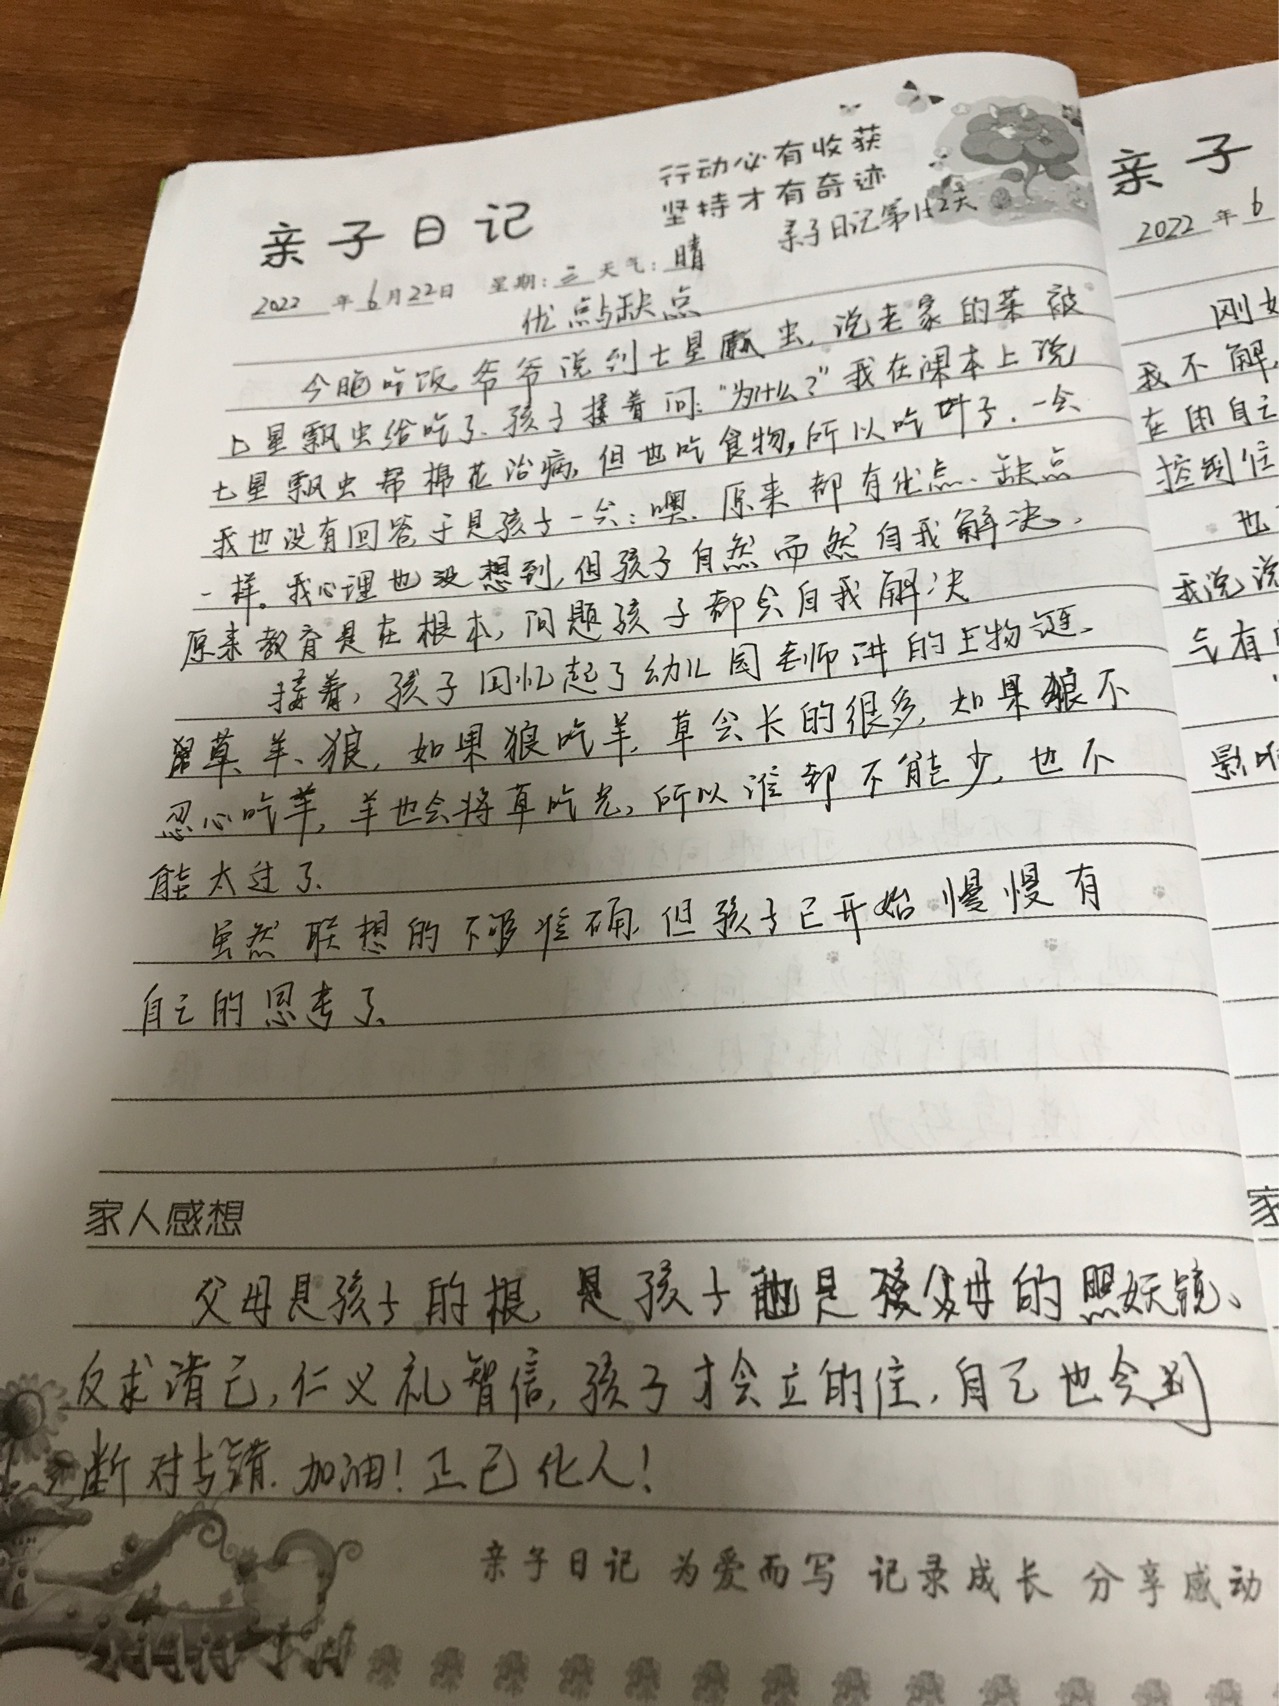 行动必有收获
坚持才有奇迹
亲子日记
亲子日记第 天
2022年6月22日 星期:三 天气:晴
优点与缺点
今晚吃饭爷爷说到七星瓢虫,说老家的菜被
七星瓢虫给吃了、孩子接着问:“为什么?”我在课本上说
七星瓢虫帮棉花治病,但也吃食物,所以吃叶子.一会
我也没有回答,于是孩子一会:噢、原来都有优点、缺点
一样。我心理也没想到,但孩子自然而然自我解决、
原来教育是在根本,问题孩子都会自我解决
接着,孩子回忆起了幼儿园老师讲的生物链、
草、羊、狼,如果狼吃羊,草会长的很多,如果狼不
忍心吃羊,羊也会将草吃光,所以谁都不能少,也不
能太过了、
虽然联想的不够准确,但孩子已开始慢慢有
自己的思考了、
家人感想
父母是孩子的根、是孩子 是 父母的照妖镜、
反求诸己,仁义礼智信,孩子才会立的住,自己也会判
断对与错.加油!正己化人!
亲子日记 为爱而写 记录成长 分享感动
亲子
2022年6
刚
我不解,
在用自己
控制住
也
我说说
气有
影响
家